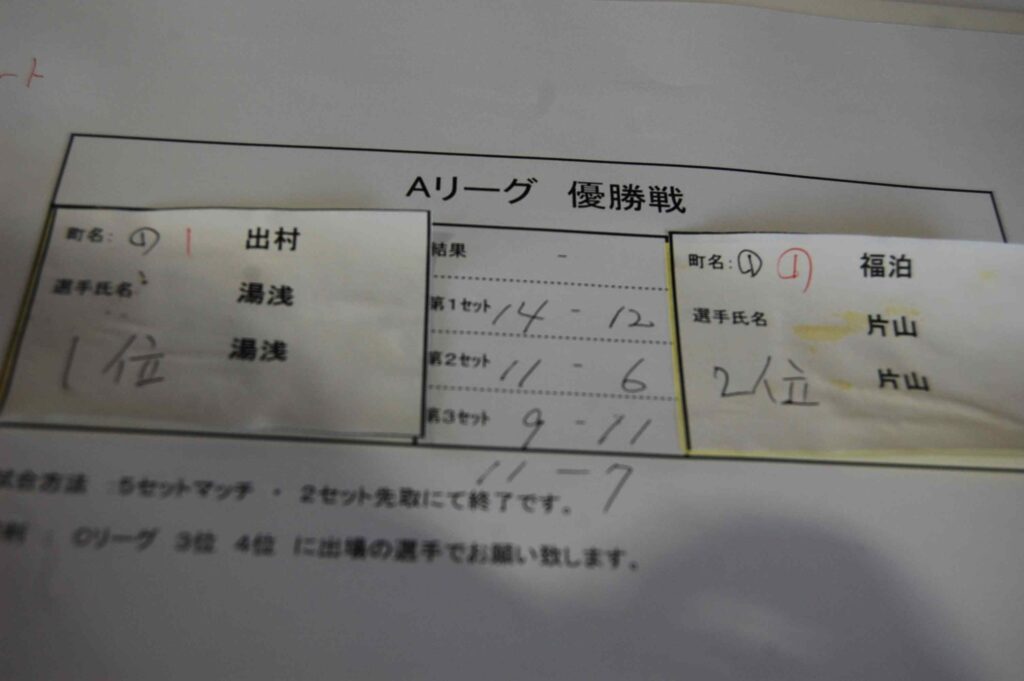 ート
Aリーグ 優勝戦
町名: ① 1 出村
選手氏名 湯浅
湯浅
1位
結果 -
第1セット 14 - 12
第2セット 11 - 6
第3セット 9 - 11
11 - 7
町名: ① ① 福泊
選手氏名 片山
片山
2位
試合方法 :5セットマッチ ・ 2セット先取にて終了です。
: Cリーグ 3位 4位 に出場の選手でお願い致します。